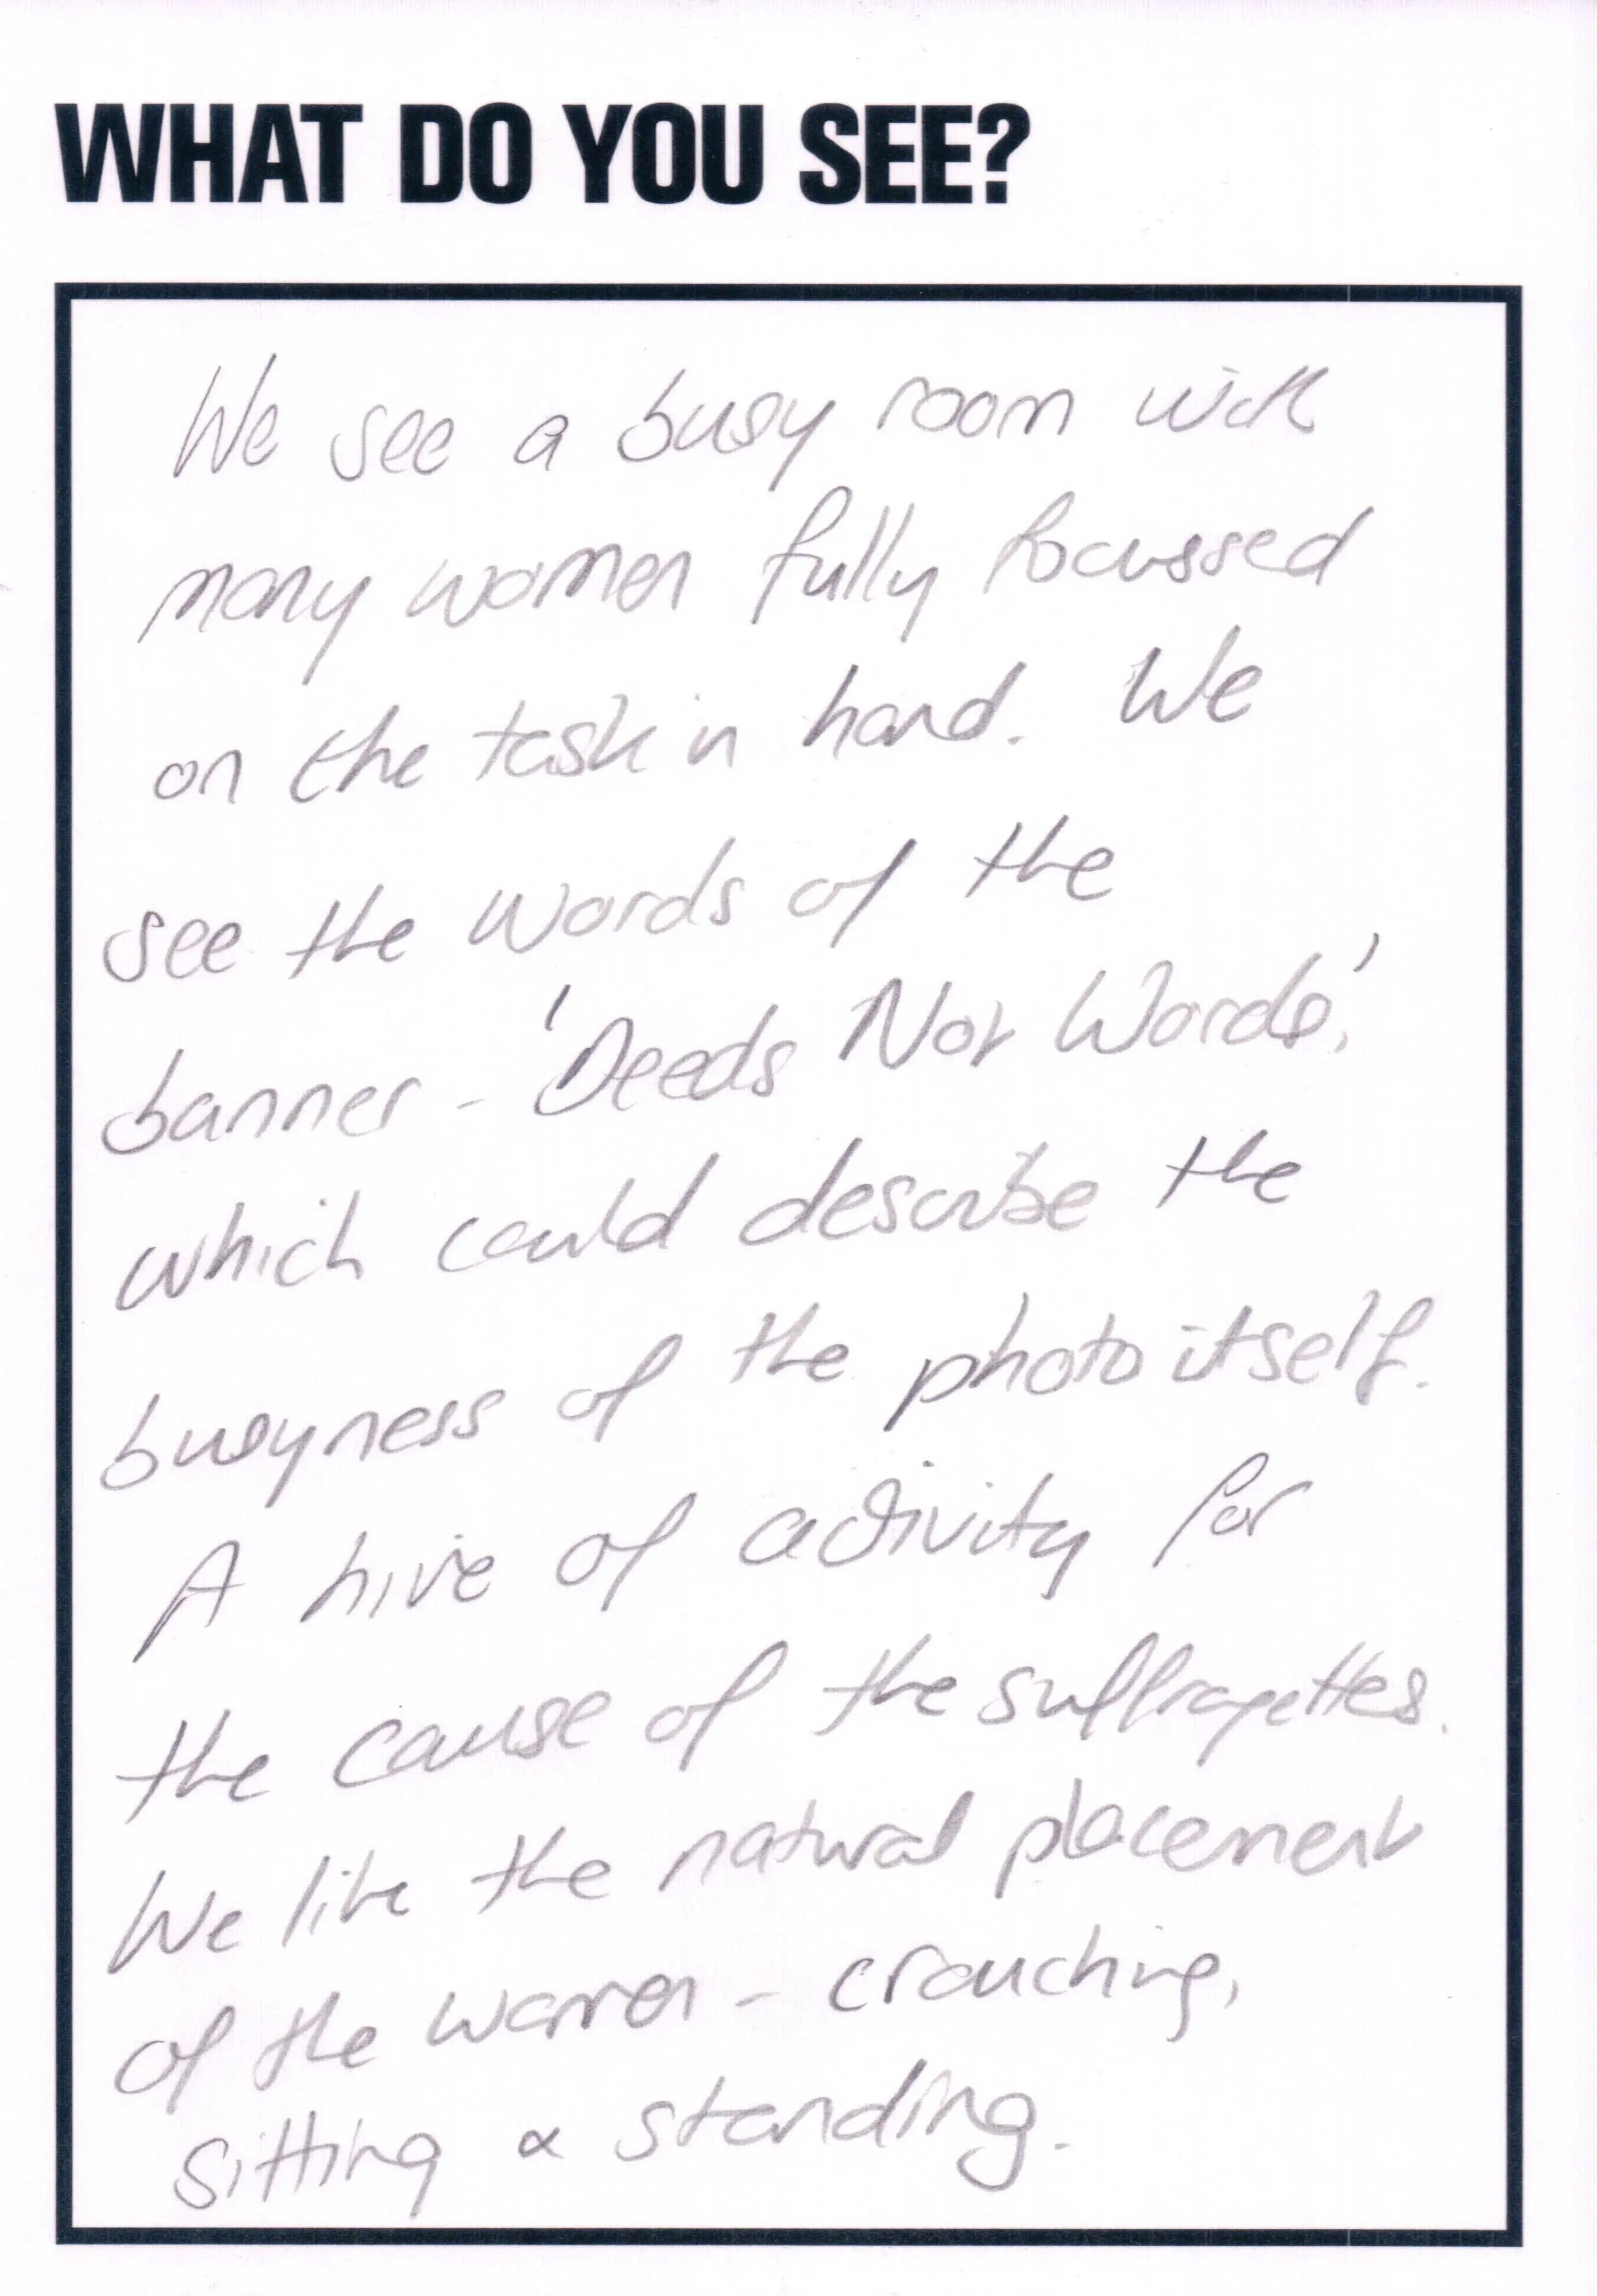 WHAT DO YOU SEE?
We see a busy room with
many women fully focussed
on the task in hand. We
see the words of the
banner - 'Deeds Not Words',
which could describe the
busyness of the photo itself.
A hive of activity for
the cause of the suffragettes.
We like the natural placement
of the women - crouching,
sitting & standing.